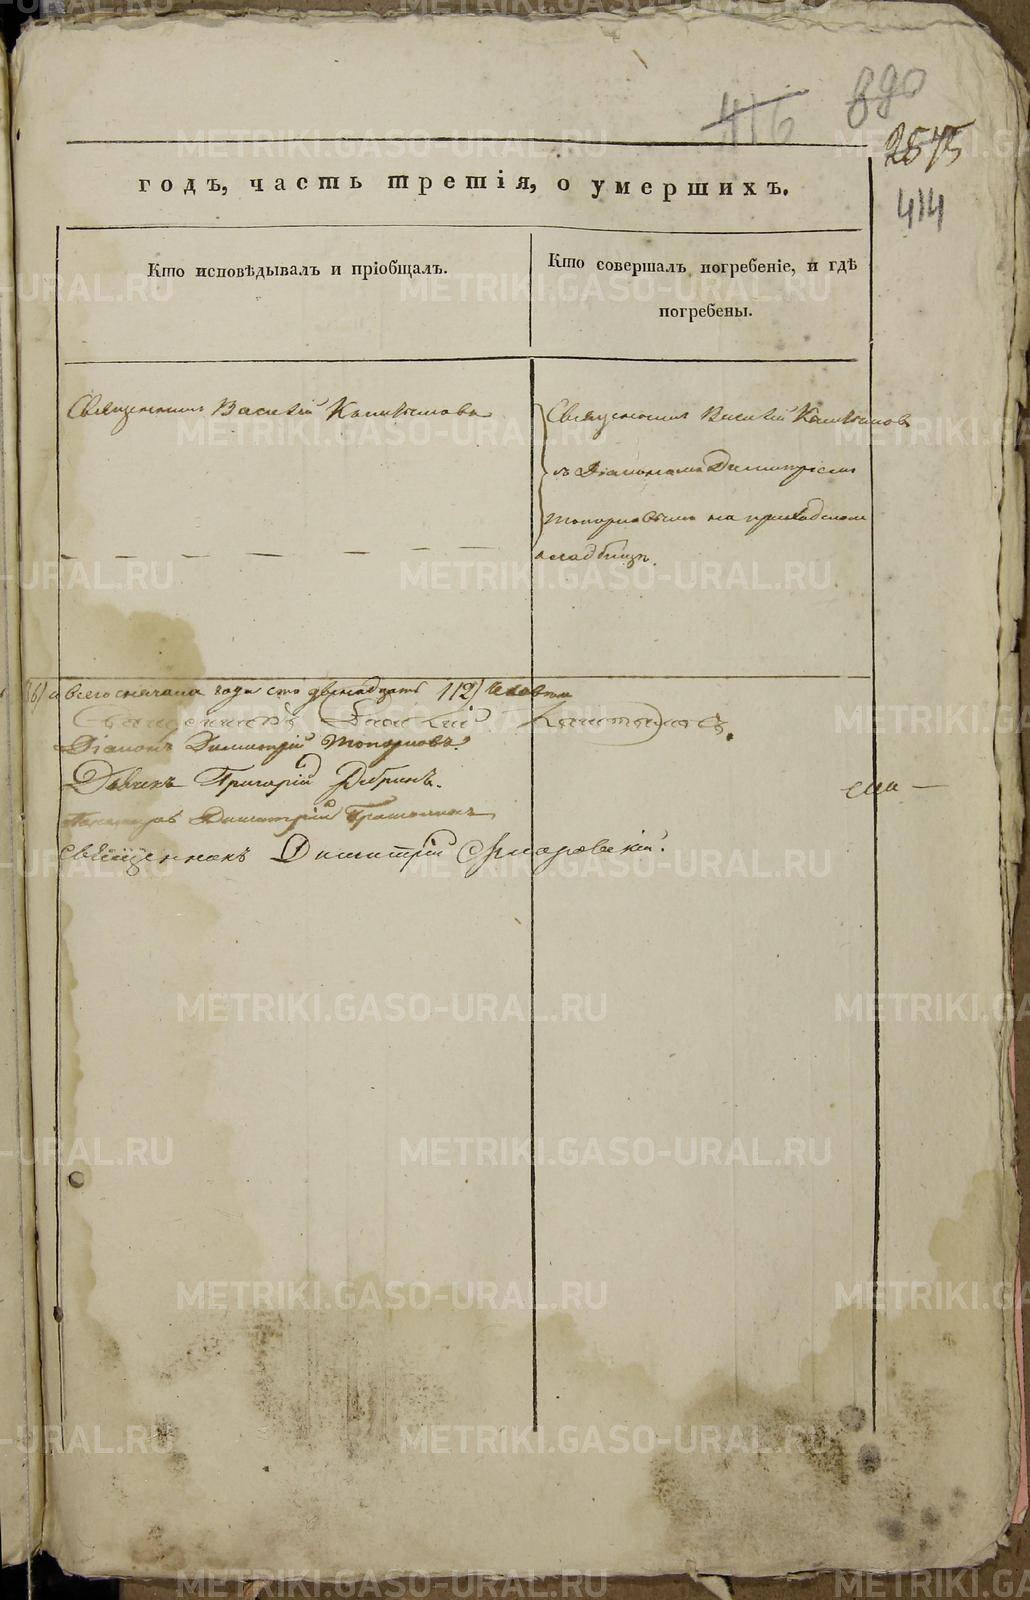 416
890
2575
414
годъ, часть третія, о умершихъ.
Кто исповѣдывалъ и пріобщалъ.
Кто совершалъ погребеніе, и гдѣ
погребены.
Священникъ Василій
Священникъ Василій
съ Діакономъ Димитріемъ
Топорковымъ на приходскомъ
кладбищѣ.
а всего сначала года сто двенадцать 112) человѣкъ
Священникъ Василій
Діаконъ Димитрій Топорковъ.
Дьячекъ Григорій Дебринъ.
Пономарь Димитрій
священникъ Димитрій
METRIKI.GASO-URAL.RU